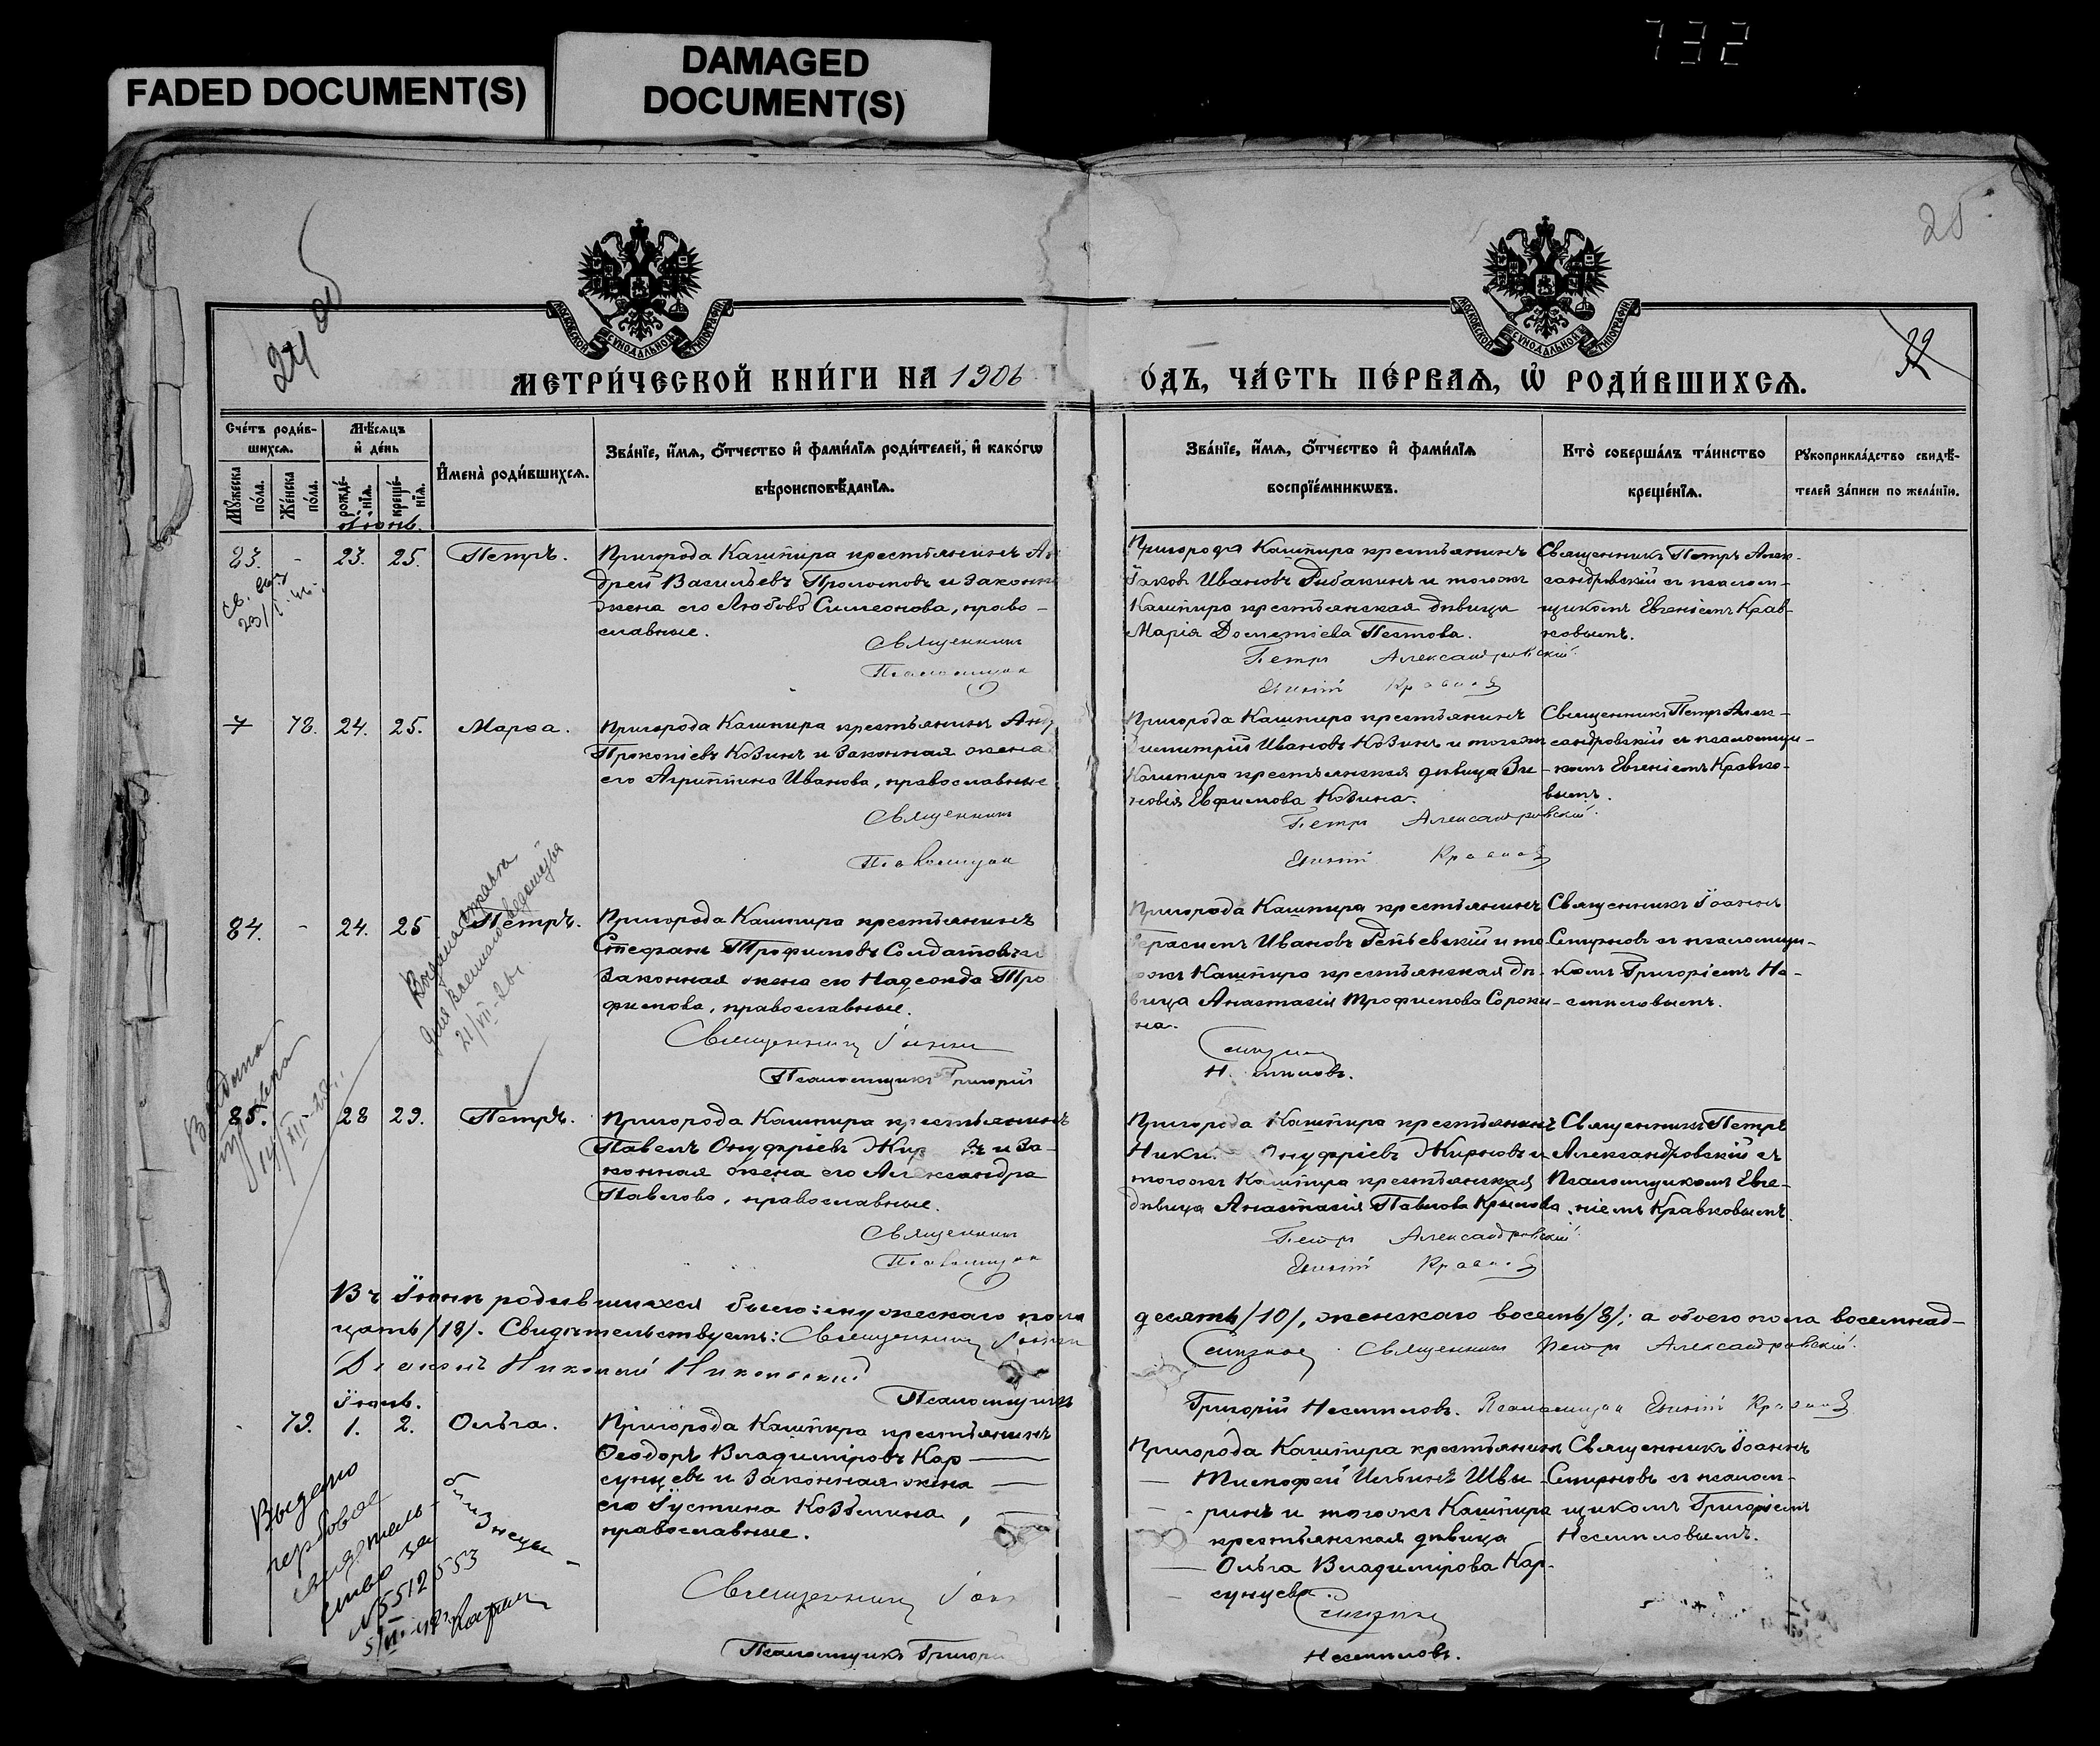 732
FADED DOCUMENT(S)
DAMAGED
DOCUMENT(S)
25
24 об
МОСКОВСКОЙ СУНОДАЛЬНОЙ ТИПОГРАФІИ
МОСКОВСКОЙ СУНОДАЛЬНОЙ ТИПОГРАФІИ
МЕТРИ́ЧЕСКОЙ КНИ́ГИ НА 1906 О́ДЪ, ЧА́СТЬ ПЕ́РВАѦ, Ѡ҆ РОДИ́ВШИХСѦ.
Сче́тъ роди́в-
шихсѧ.
Мꙋ́жеска по́ла.
Же́нска по́ла.
Мѣ́сѧцъ
и҆ де́нь
рожде́-нїѧ.
креще́-нїѧ.
И҆мена̀ роди́вшихсѧ.
Зва́нїе, и҆́мѧ, ѻ҆́тчество и҆ фами́лїѧ роди́телей, и҆ како́гѡ
вѣроисповѣ́данїѧ.
Зва́нїе, и҆́мѧ, ѻ҆́тчество и҆ фами́лїѧ
воспрїе́мникѡвъ.
Кто̀ соверша́лъ та́инство
креще́нїѧ.
Рꙋкоприкла́дство свидѣ́-
телей за́писи по жела́нїю.
Іюнь.
83. - 23. 25. Петръ.
Пригорода Кашпира крестьянинъ Ан
дрей Васильевъ и законн
жена его Любовь Симеонова, право-
славные.
Священникъ
Псаломщик
Пригорода Кашпира крестьянинъ
Іаковъ Ивановъ Рыбакинъ и тогожъ
Кашпира крестьянская дѣвица
Марія Дометіева Пестова.
Петръ Александровскій
Евгеній
Священникъ Петръ Алек-
сандровскій съ псалом-
щикомъ Евгеніемъ Крав-
ковымъ.
78. 24. 25. Марѳа.
Пригорода Кашпира крестьянинъ Анд
Прокопіевъ Козинъ и законная жена
его Агриппина Иванова, православные
Священникъ
Псаломщик
Пригорода Кашпира крестьянинъ
Димитрій Ивановъ Козинъ и тогожъ
Кашпира крестьянская дѣвица Зи-
новія Евфимова Козина.
Петръ Александровскій
Евгеній
Священникъ Петръ Алек-
сандровскій съ псаломщи-
комъ Евгеніемъ Кравко-
вымъ.
84. - 24. 25 Петръ.
Пригорода Кашпира крестьянинъ
Стефанъ Трофимовъ Солдатовъ и
законная жена его Надежда Тро
фимова, православные.
Священникъ Іоаннъ
Псаломщикъ Григорій
Пригорода Кашпира крестьянинъ
Герасимъ Ивановъ Репьевскій и то-
гожъ Кашпира крестьянская дѣ-
вица Анастасія Трофимова Сороки-
на.
Смирнов
Священникъ Іоаннъ
Смирновъ съ псаломщи-
комъ Григоріемъ Не-
смѣловымъ.
Выдана справка
для военного ведомства
21/VII-26г.
85. 28 29. Петръ.
Пригорода Кашпира крестьянинъ
Павелъ Онуфріевъ Жир въ и за-
конная жена его Александра
Павлова, православные.
Священникъ
Псаломщик
Пригорода Кашпира крестьянинъ
Ники Онуфріевъ Жирновъ и
тогожъ Кашпира крестьянская
дѣвица Анастасія Павлова Крылова.
Петръ Александровскій
Евгеній
Священникъ Петръ
Александровскій съ
Псаломщикомъ Евге-
ніемъ Кравковымъ
Въ Іюнѣ родившихся было: мужескаго пола десять /10/, женскаго восемь /8/; а обоего пола восемнад-
цать /18/. Свидѣтельствуемъ: Священникъ Іоаннъ Смирнов Священникъ Петръ Александровскій
Діаконъ Николай Никольскій
Псаломщикъ Григорій Несмѣловъ. Псаломщик Евгеній
Іюль.
- 79. 1. 2. Ольга.
Пригорода Кашпира крестьянинъ
Ѳеодоръ Владиміровъ Кар-
сунцевъ и законная жена
его Іустина Козьмина,
православные.
Священникъ Іоан
Псаломщикъ Григорі
Пригорода Кашпира крестьянинъ
Тимофей Ильинъ Швы-
ринъ и тогожъ Кашпира
крестьянская дѣвица
Ольга Владимірова Кар-
сунцева.
Смирнов
Несмѣловъ.
Священникъ Іоаннъ
Смирновъ съ псалом-
щикомъ Григоріемъ
Несмѣловымъ.
Выдано
первое
свидетель-
ство за